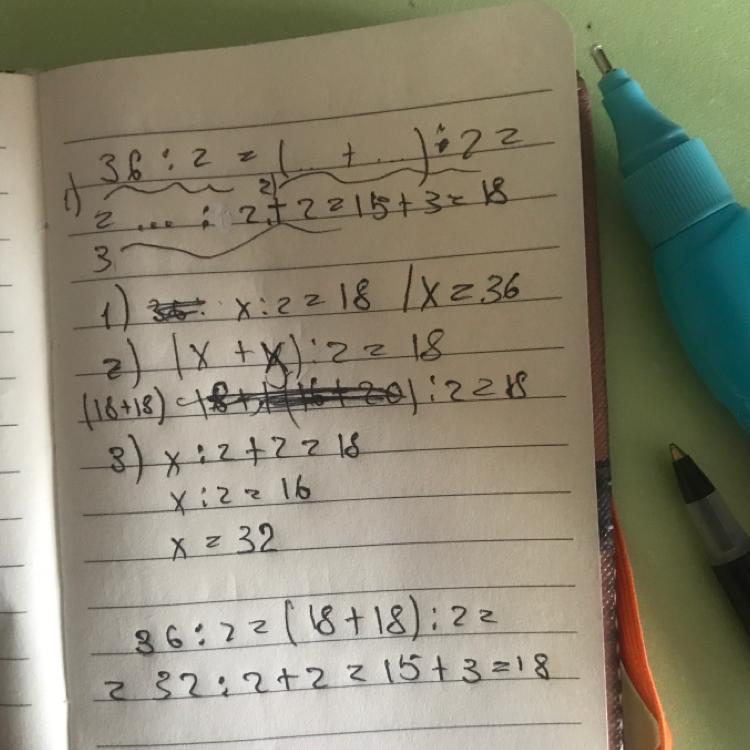 36 : 2 = (... + ...) : 2 =
1) 2)
= ... : 2 + 2 = 15 + 3 = 18
3
1) x : 2 = 18 / x = 36
2) (x + y) : 2 = 18
(18+18) : 2 = 18
3) x : 2 + 2 = 18
x : 2 = 16
x = 32
36 : 2 = (18 + 18) : 2 =
= 32 : 2 + 2 = 15 + 3 = 18